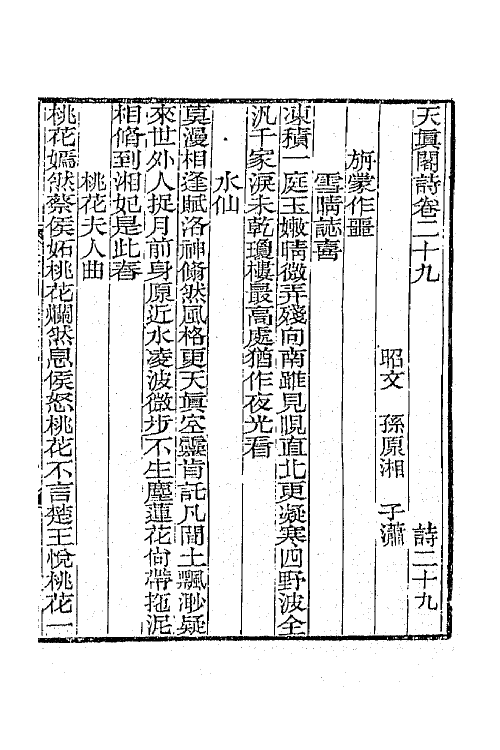 天真閣詩卷二十九 詩二十九
昭文 孫原湘 子瀟
旃蒙作噩
雪晴誌喜
凍積一庭玉嫩晴微弄殘向南雖見晛直北更凝寒四野波全
汎千家淚未乾瓊樓最高處猶作夜光看
水仙
莫漫相逢賦洛神翛然風格更天真空靈肯託凡間土飄渺疑
來世外人捉月前身原近水凌波微步不生塵蓮花尙帶拖泥
相脩到湘妃是此春
桃花夫人曲
桃花嫣然蔡侯妬桃花爛然息侯怒桃花不言楚王悅桃花一